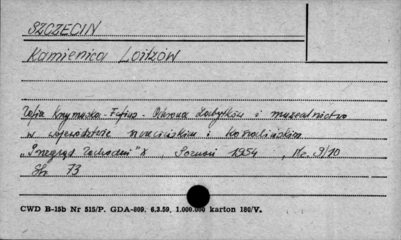 SZCZECIN
Kamienica Loitzów
Zofia Krzymuska-Fafius - Ochrona Zabytków i muzealnictwo
w województwie szczecińskim i koszalińskim
„Przegląd Zachodni" X, Poznań 1954, Nr. 9/10
Str. 73
CWD B-15b Nr 515/P. GDA-809. 6.3.59. 1.000.000 karton 180/V.